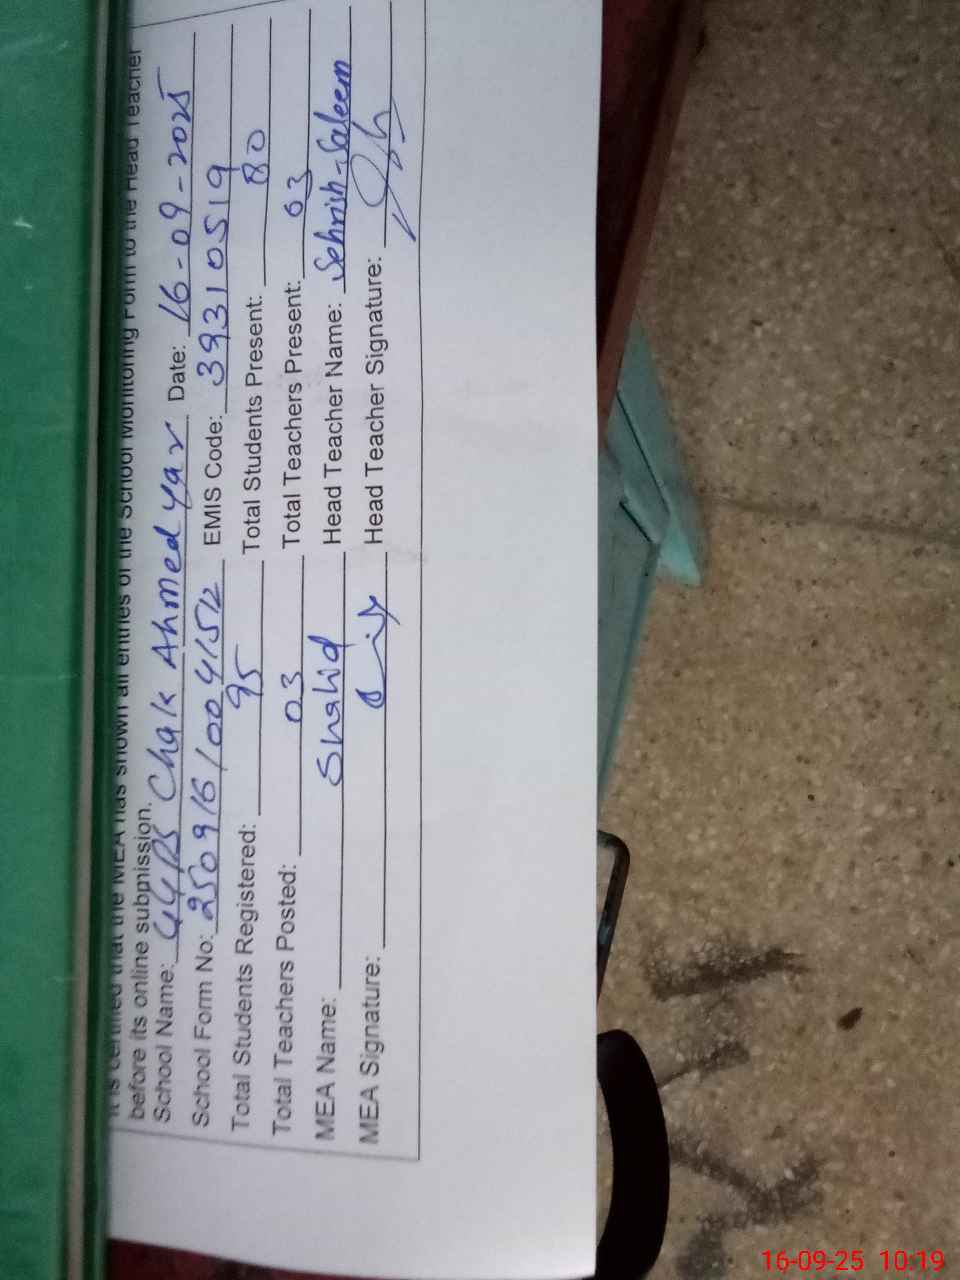 It is certified that the MEA has shown all entries of the School Monitoring Form to the Head Teacher
before its online submission.
School Name: GGPS Chak Ahmed yar Date: 16-09-2025
School Form No: 250916/004152 EMIS Code: 39310519
Total Students Registered: 95 Total Students Present: 80
Total Teachers Posted: 03 Total Teachers Present: 03
MEA Name: Shahid Head Teacher Name: Sehrish-Saleem
MEA Signature: Head Teacher Signature:
16-09-25 10:19